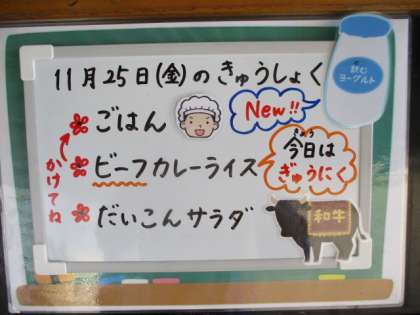 11月25日(金)のきゅうしょく
飲む
ヨーグルト
New!!
ごはん
かけてね
ビーフカレーライス
きょう
今日は
ぎゅうにく
だいこんサラダ
和牛